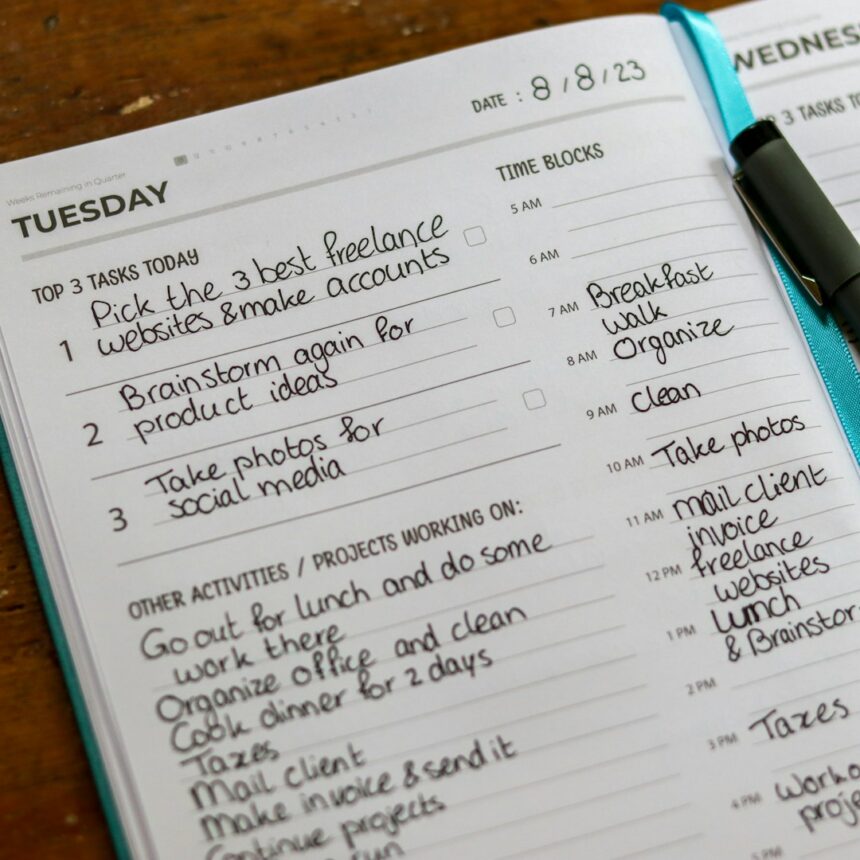 Weeks Remaining in Quarter
TUESDAY
DATE : 8 / 8 / 23
TOP 3 TASKS TODAY
1 Pick the 3 best freelance
websites & make accounts
2 Brainstorm again for
product ideas
3 Take photos for
social media
OTHER ACTIVITIES / PROJECTS WORKING ON:
Go out for lunch and do some
work there
Organize office and clean
Cook dinner for 2 days
Taxes
Mail client
Make invoice & send it
Continue projects
fun
TIME BLOCKS
5 AM
6 AM
7 AM Breakfast
Walk
8 AM Organize
9 AM Clean
10 AM Take photos
11 AM mail client
invoice
12 PM freelance
websites
1 PM Lunch
& Brainstor
2 PM
3 PM Taxes
4 PM Worko
proje
PM
WEDNES
3 TASKS TO